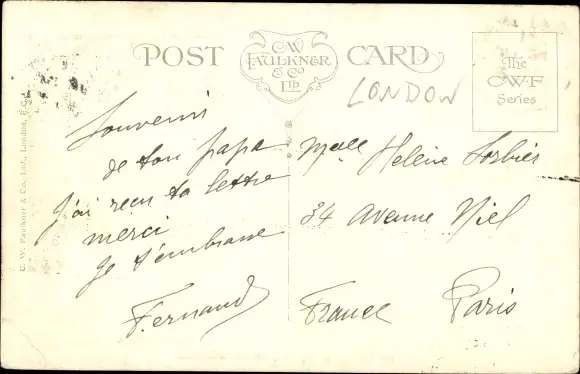 POST CARD
C.W.
FAULKNER
& Co
Ltd
LONDON
The
C.W.F
Series
C. W. Faulkner & Co., Ltd., London, E.C.
Souvenir
de ton papa
j'ai reçu ta lettre
merci
je t'embrasse
Fernand
Melle Helène Sorbier
34 Avenue Niel
France Paris